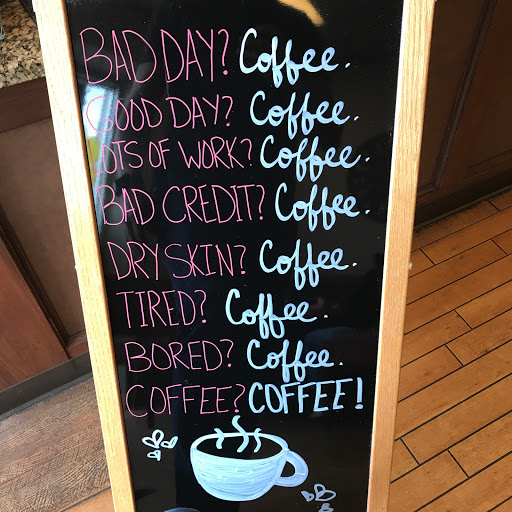 BAD DAY? Coffee.
GOOD DAY? Coffee.
LOTS OF WORK? Coffee.
BAD CREDIT? Coffee.
DRY SKIN? Coffee.
TIRED? Coffee.
BORED? Coffee.
COFFEE? COFFEE!